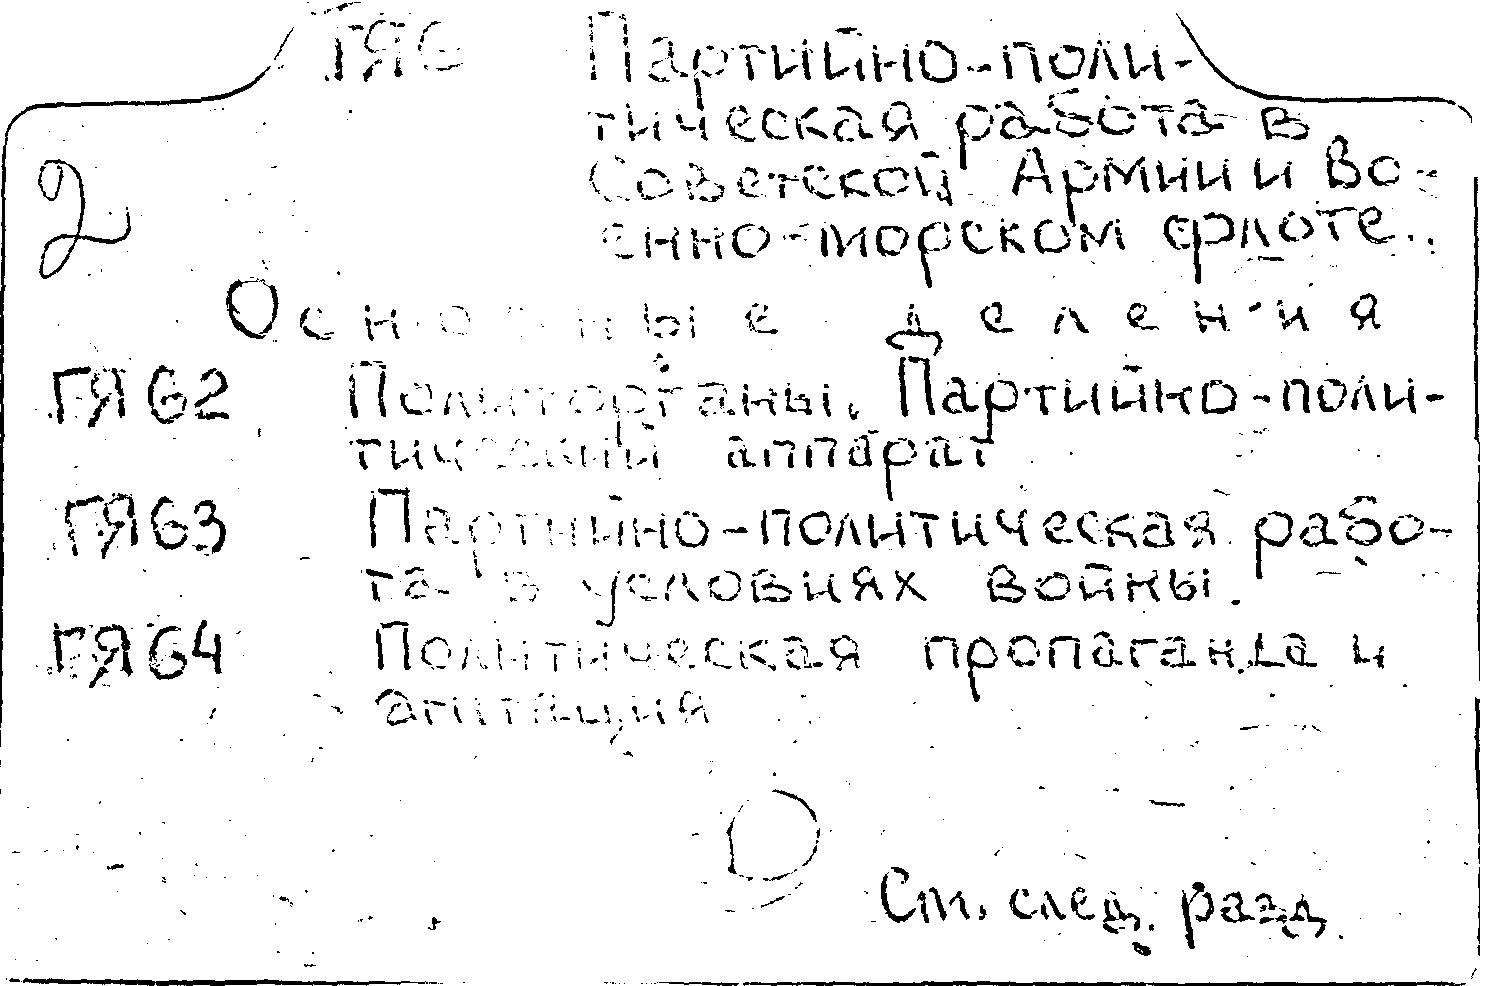 ГЯ6 Партийно-поли-
тическая работа в
Советской Армии и Во-
енно-морском флоте.
2
Основные деления
ГЯ62 Политорганы. Партийно-поли-
тический аппарат
ГЯ63 Партийно-политическая рабо-
та в условиях войны.
ГЯ64 Политическая пропаганда и
агитация
См. след. разд.